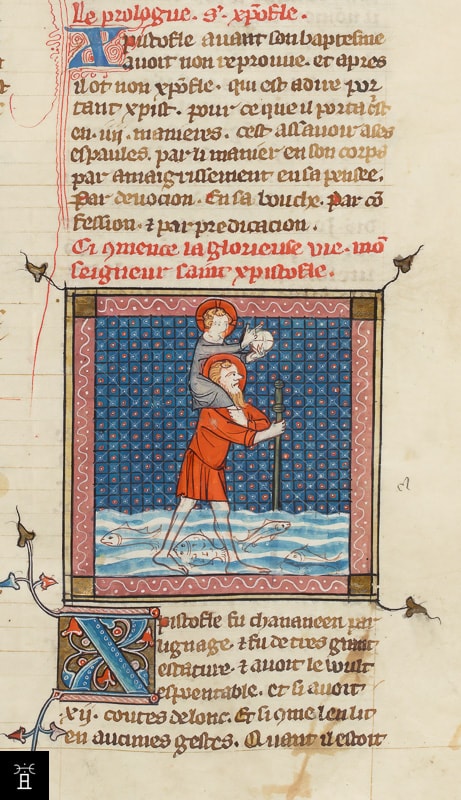 Le prologue. S͛. xpōfle.
Xpistofle auant son baptesme
auoit non reprouue. et apres
il ot non xpōfle. qui est adire por
tant xpist. pour ce que il porta c̄st
en .iiij. manieres. cest assauoir ases
espaules. par li mener en son corps
par amaigrissement en sa pensee.
Par deuocion. En sa bouche. Par cō
fession. ⁊ par predicacion.
Ci ꝯmence la glorieuse vie. mō
seigneur saint xpistofle.
Xpistofle fu chananeen par
lignage. ⁊ fu de tres grant
estature. ⁊ auoit le wult
espouentable. et si auoit
xij. coutes de lonc. Et si ꝯme len lit
en aucunes gestes. Quant il estoit